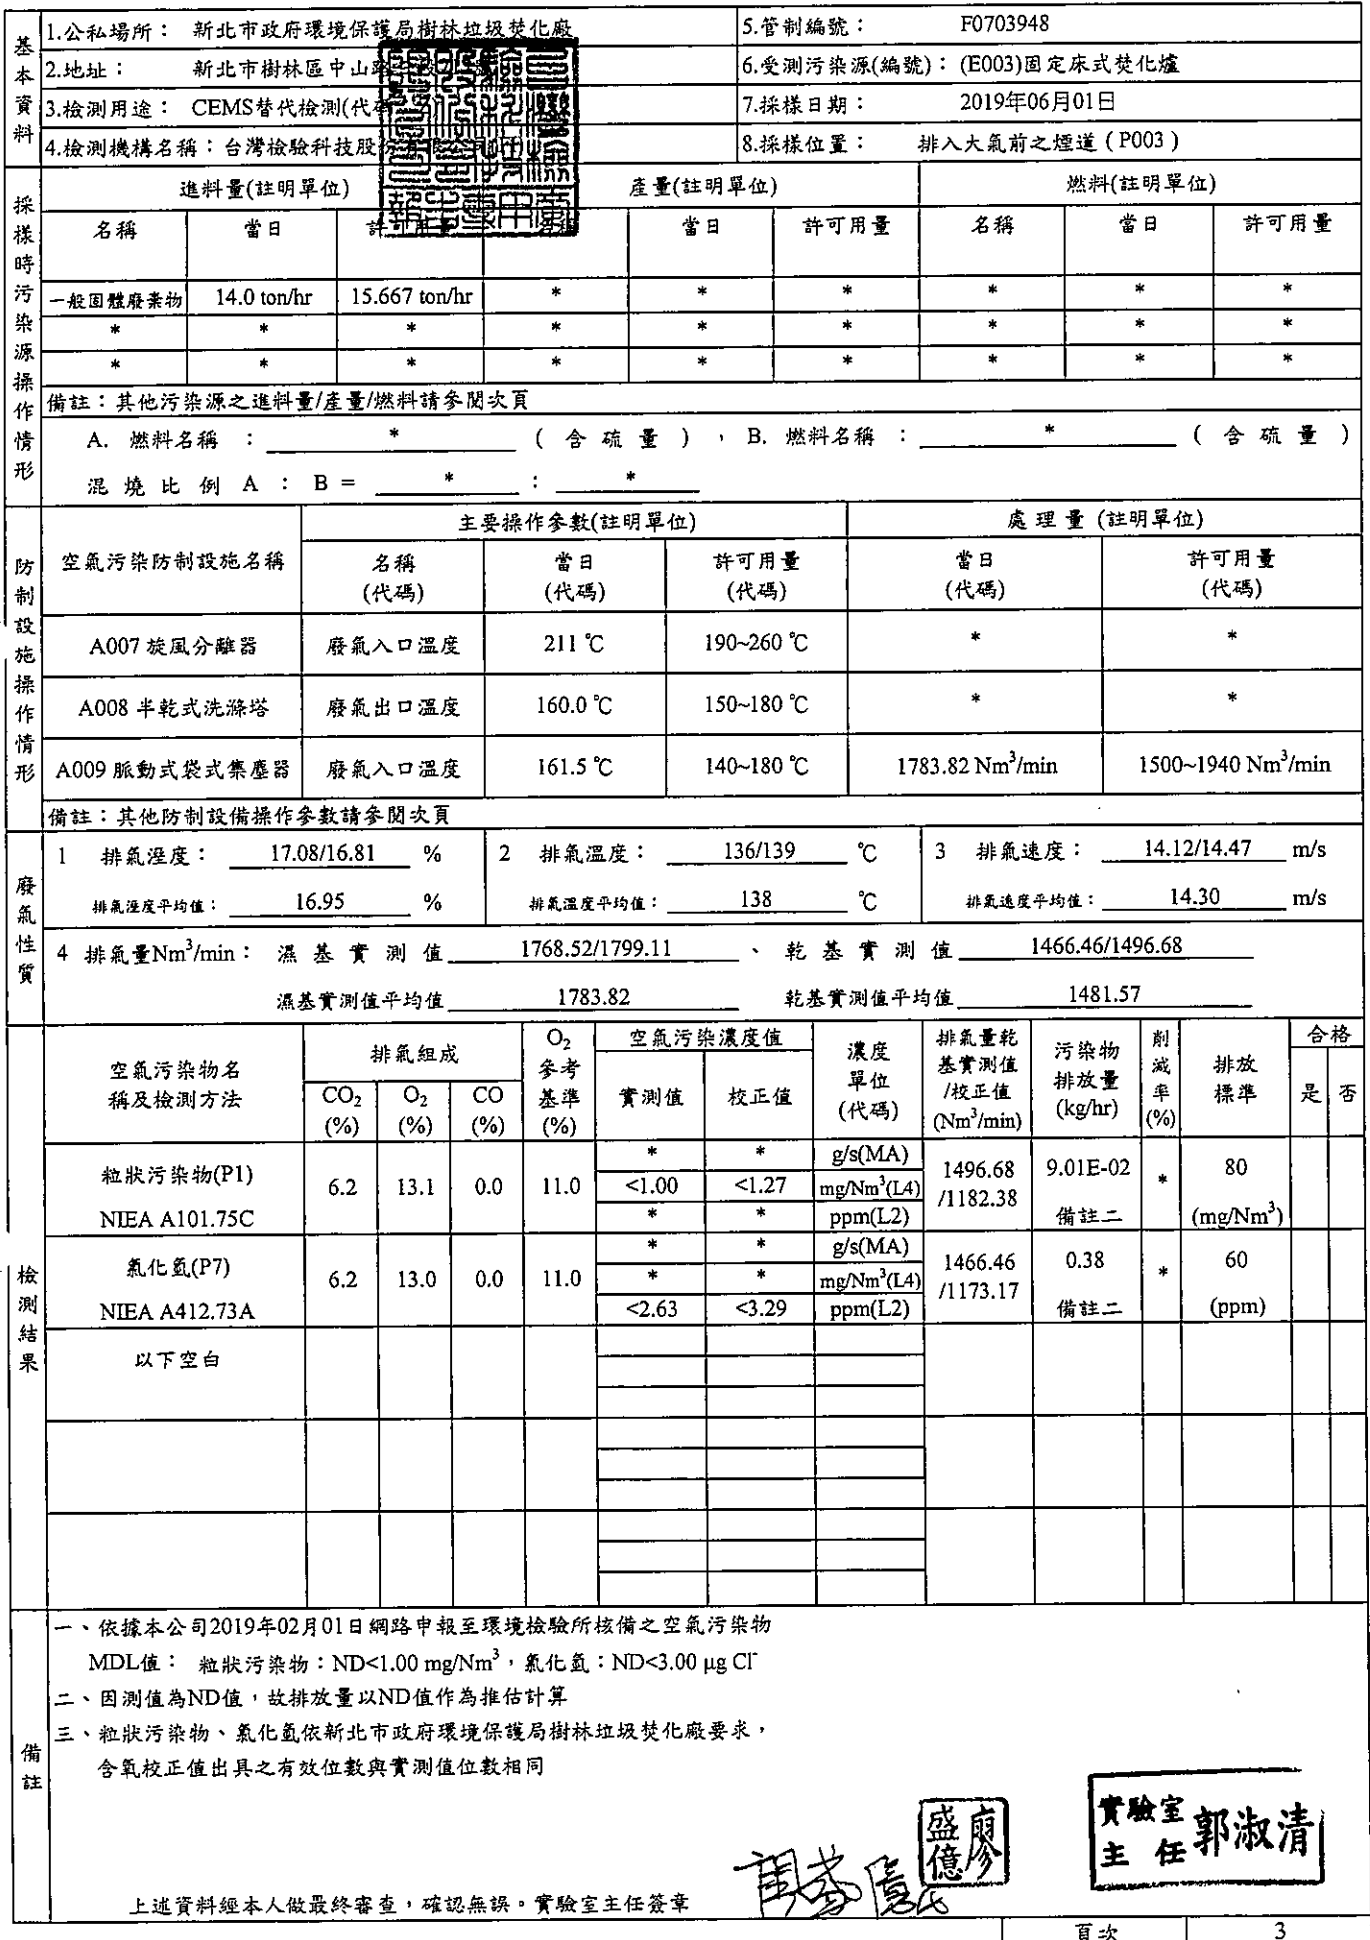 基本資料
1.公私場所： 新北市政府環境保護局樹林垃圾焚化廠 5.管制編號： F0703948
2.地址： 新北市樹林區中山路 6.受測污染源(編號)：(E003)固定床式焚化爐
3.檢測用途： CEMS替代檢測(代碼 7.採樣日期： 2019年06月01日
4.檢測機構名稱：台灣檢驗科技股份 8.採樣位置： 排入大氣前之煙道（P003）
採樣時污染源操作情形
進料量(註明單位) 產量(註明單位) 燃料(註明單位)
名稱 當日 許可用量 名稱 當日 許可用量 名稱 當日 許可用量
一般固體廢棄物 14.0 ton/hr 15.667 ton/hr * * * * * *
* * * * * * * * *
* * * * * * * * *
備註：其他污染源之進料量/產量/燃料請參閱次頁
A. 燃料名稱 ： * (含硫量)，B. 燃料名稱 ： * (含硫量)
混燒比例 A ： B = * ： *
防制設施操作情形
空氣污染防制設施名稱 主要操作參數(註明單位) 處理量 (註明單位)
名稱(代碼) 當日(代碼) 許可用量(代碼) 當日(代碼) 許可用量(代碼)
A007 旋風分離器 廢氣入口溫度 211 ℃ 190~260 ℃ * *
A008 半乾式洗滌塔 廢氣出口溫度 160.0 ℃ 150~180 ℃ * *
A009 脈動式袋式集塵器 廢氣入口溫度 161.5 ℃ 140~180 ℃ 1783.82 Nm³/min 1500~1940 Nm³/min
備註：其他防制設備操作參數請參閱次頁
廢氣性質
1 排氣溼度： 17.08/16.81 % 2 排氣溫度： 136/139 ℃ 3 排氣速度： 14.12/14.47 m/s
排氣溼度平均值： 16.95 % 排氣溫度平均值： 138 ℃ 排氣速度平均值： 14.30 m/s
4 排氣量Nm³/min： 濕基實測值 1768.52/1799.11 、 乾基實測值 1466.46/1496.68
濕基實測值平均值 1783.82 乾基實測值平均值 1481.57
檢測結果
空氣污染物名稱及檢測方法 排氣組成 O₂參考基準(%) 空氣污染濃度值 濃度單位(代碼) 排氣量乾基實測值/校正值(Nm³/min) 污染物排放量(kg/hr) 削減率(%) 排放標準 合格
CO₂(%) O₂(%) CO(%) 實測值 校正值 是 否
粒狀污染物(P1) NIEA A101.75C 6.2 13.1 0.0 11.0 1496.68/1182.38 9.01E-02 備註二 * 80 (mg/Nm³)
* * g/s(MA)
<1.00 <1.27 mg/Nm³(L4)
* * ppm(L2)
氯化氫(P7) NIEA A412.73A 6.2 13.0 0.0 11.0 1466.46/1173.17 0.38 備註二 * 60 (ppm)
* * g/s(MA)
* * mg/Nm³(L4)
<2.63 <3.29 ppm(L2)
以下空白
備註
一、依據本公司2019年02月01日網路申報至環境檢驗所核備之空氣污染物
MDL值： 粒狀污染物：ND<1.00 mg/Nm³，氯化氫：ND<3.00 μg Cl⁻
二、因測值為ND值，故排放量以ND值作為推估計算
三、粒狀污染物、氯化氫依新北市政府環境保護局樹林垃圾焚化廠要求，
含氧校正值出具之有效位數與實測值位數相同
廖盛億
實驗室主任 郭淑清
上述資料經本人做最終審查，確認無誤。實驗室主任簽章
頁次 3